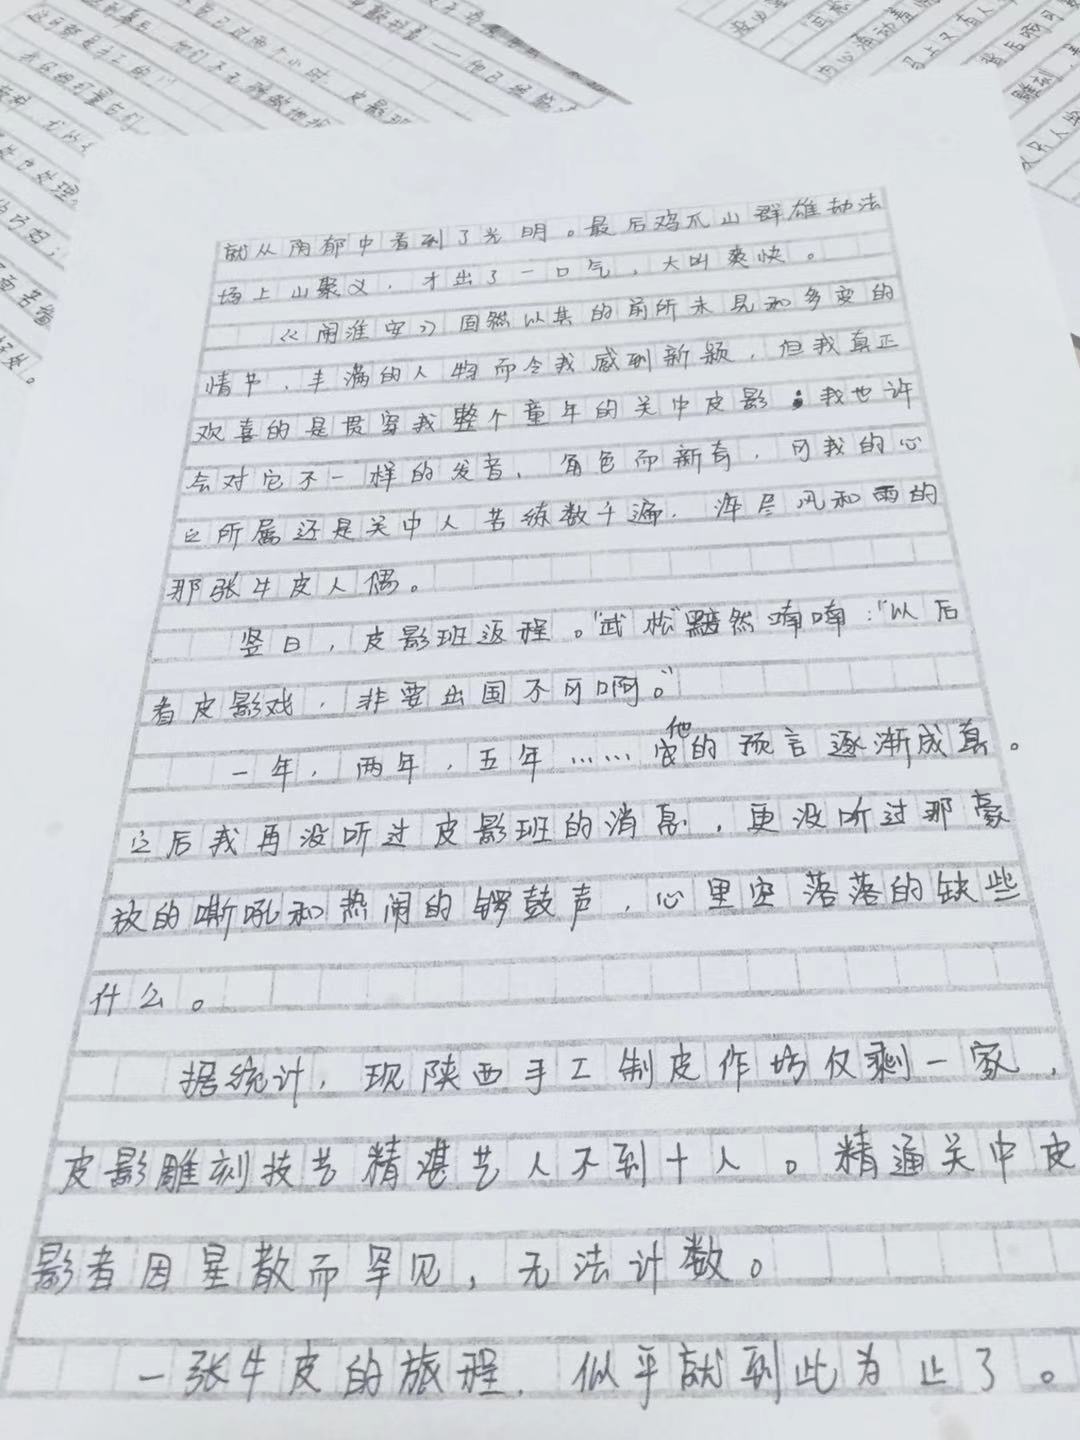 就从阴郁中看到了光明。最后鸡爪山群雄劫法
场上山聚义，才出了一口气，大叫爽快。
《闹淮安》固然以其的前所未见和多变的
情节、丰满的人物而令我感到新颖，但我真正
欢喜的是贯穿我整个童年的关中皮影；我也许
会对它不一样的发音、角色而新奇，可我的心
之所属还是关中人苦练数千遍，淬尽风和雨的
那张牛皮人偶。
翌日，皮影班返程。“武松”黯然喃喃：“以后
看皮影戏，非要出国不可啊。”
一年，两年，五年……他的预言逐渐成真。
之后我再没听过皮影班的消息，更没听过那豪
放的嘶吼和热闹的锣鼓声，心里空落落的缺些
什么。
据统计，现陕西手工制皮作坊仅剩一家，
皮影雕刻技艺精湛艺人不到十人。精通关中皮
影者因星散而罕见，无法计数。
一张牛皮的旅程，似乎就到此为止了。